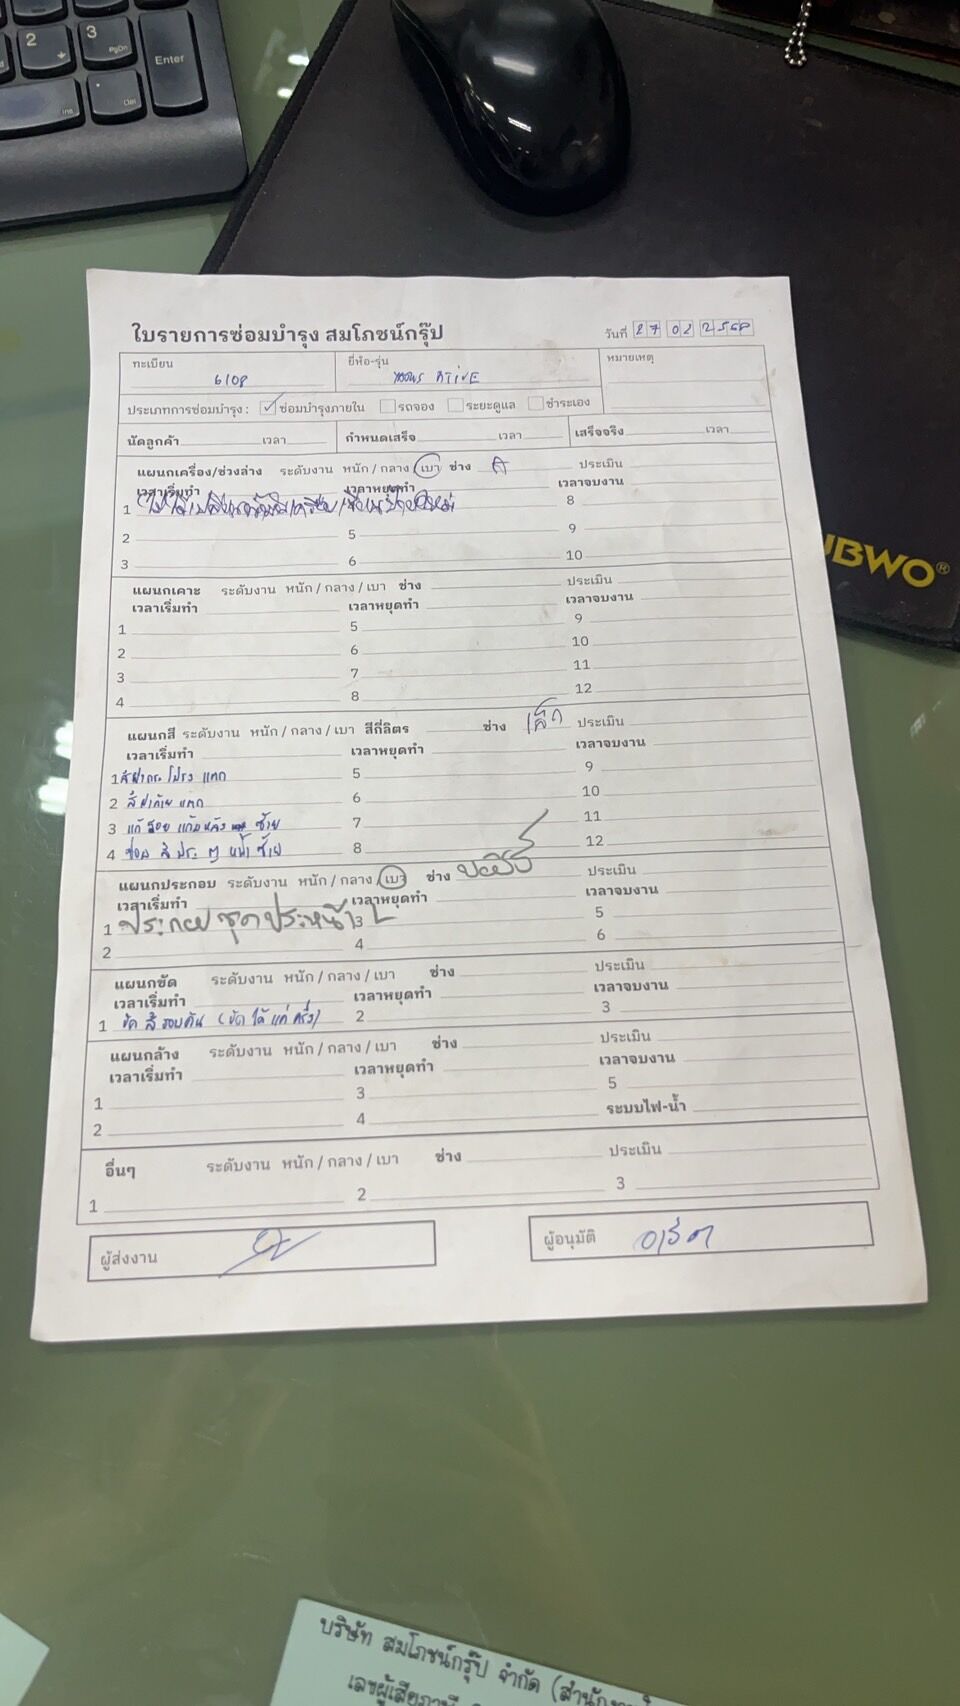 2
3
PgDn
Enter
Ins
Del
UBWO®
ใบรายการซ่อมบำรุง สมโภชน์กรุ๊ป
วันที่ 27 02 2568
ทะเบียน 6108
ยี่ห้อ-รุ่น
หมายเหตุ
ประเภทการซ่อมบำรุง : ✓ ซ่อมบำรุงภายใน รถจอง ระยะดูแล ชำระเอง
นัดลูกค้า เวลา กำหนดเสร็จ เวลา เสร็จจริง เวลา
แผนกเครื่อง/ช่วงล่าง ระดับงาน หนัก / กลาง / เบา ช่าง A ประเมิน
เวลาเริ่มทำ เวลาหยุดทำ เวลาจบงาน
1 8
2 5 9
3 6 10
แผนกเคาะ ระดับงาน หนัก / กลาง / เบา ช่าง ประเมิน
เวลาเริ่มทำ เวลาหยุดทำ เวลาจบงาน
1 5 9
2 6 10
3 7 11
4 8 12
แผนกสี ระดับงาน หนัก / กลาง / เบา สีกี่ลิตร ช่าง เล็ก ประเมิน
เวลาเริ่มทำ เวลาหยุดทำ เวลาจบงาน
1 สีฝากระโปรง แตก 5 9
2 สีฝาท้าย แตก 6 10
3 แก้ รอย แก้มหลัง ซ้าย 7 11
4 ซ่อม สี ประตู หน้า ซ้าย 8 12
แผนกประกอบ ระดับงาน หนัก / กลาง / เบา ช่าง ประเมิน
เวลาเริ่มทำ เวลาหยุดทำ เวลาจบงาน
1 ประกอบ ชุด ประหน้า L 3 5
2 4 6
แผนกขัด ระดับงาน หนัก / กลาง / เบา ช่าง ประเมิน
เวลาเริ่มทำ เวลาหยุดทำ เวลาจบงาน
1 ขัด สี รอบคัน (ขัด ได้ แค่ ครึ่ง) 2 3
แผนกล้าง ระดับงาน หนัก / กลาง / เบา ช่าง ประเมิน
เวลาเริ่มทำ เวลาหยุดทำ เวลาจบงาน
1 3 5
2 4 ระบบไฟ-น้ำ
อื่นๆ ระดับงาน หนัก / กลาง / เบา ช่าง ประเมิน
1 2 3
ผู้ส่งงาน
ผู้อนุมัติ
บริษัท สมโภชน์กรุ๊ป จำกัด (สำนักงาน
เลขผู้เสียภาษี